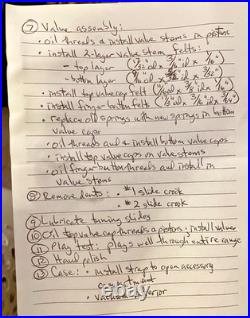 ⑦ Valve assembly:
• oil threads & install valve stems in pistons
• install 2-layer valve stem felts:
- top layer (1/2" id x 3/4" id x 1/16")
- bottom layer
• install top valve cap felt
• install finger button felts
• replace old springs with new springs in bottom
valve caps
• oil threads and install bottom valve caps
• install top valve caps on valve stems
• oil finger button threads and install in
valve stems
⑧ Remove dents: • #1 slide crook
• #2 slide crook
⑨ Lubricate tuning slides
⑩ Oil top valve cap threads & pistons; install valves
⑪ Play test: plays well through entire range
⑫ Hand polish
⑬ Case: • install strap to open accessory
compartment
• vacuum interior